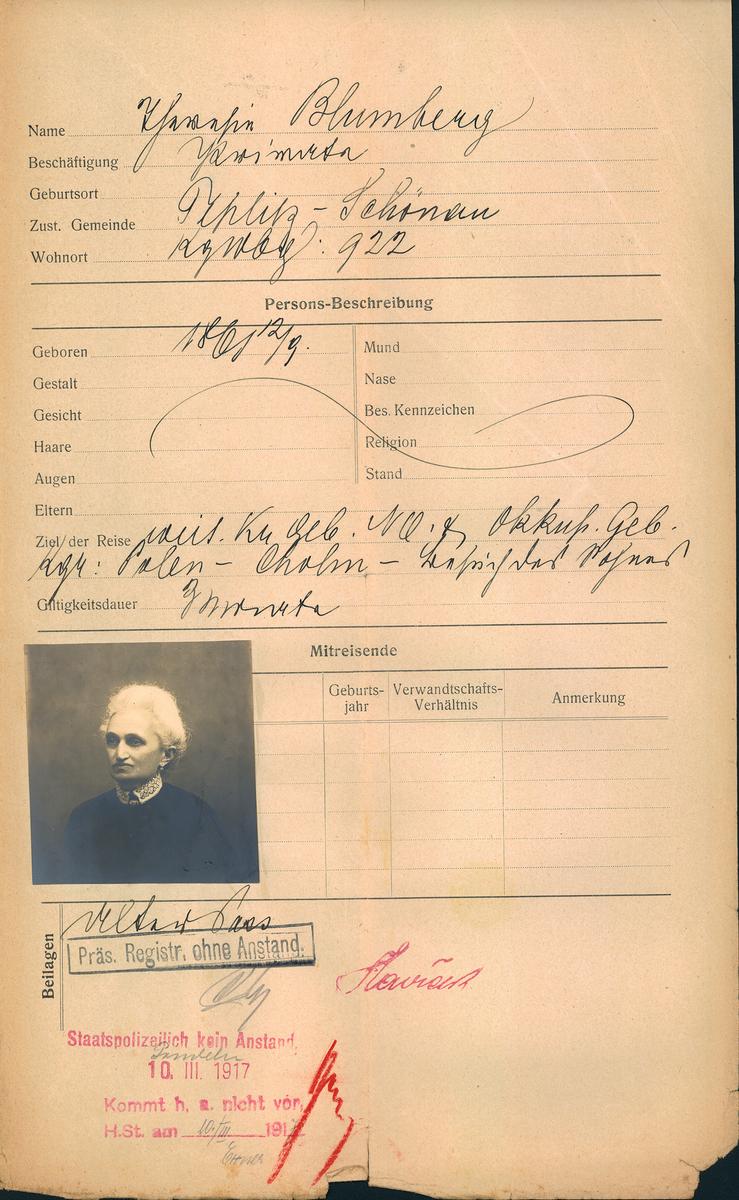 Name Theresie Blumberg
Beschäftigung Private
Geburtsort
Zust. Gemeinde Teplitz - Schönau
Wohnort Kgl Wbg: 922
Persons-Beschreibung
Geboren 1861 12/9.
Gestalt
Gesicht
Haare
Augen
Mund
Nase
Bes. Kennzeichen
Religion
Stand
Eltern
Ziel der Reise weit. Kr. Geb. NO. & Okkup. Geb.
Kgr: Polen - Cholm - Besuch des Sohnes
Giltigkeitsdauer 3 Monate
Mitreisende
Geburts-
jahr
Verwandtschafts-
Verhältnis
Anmerkung
Beilagen
Alter Pass
Präs. Registr. ohne Anstand.
Staatspolizeilich kein Anstand.
10. III. 1917
Kommt h. a. nicht vor.
H.St. am 10./III 191